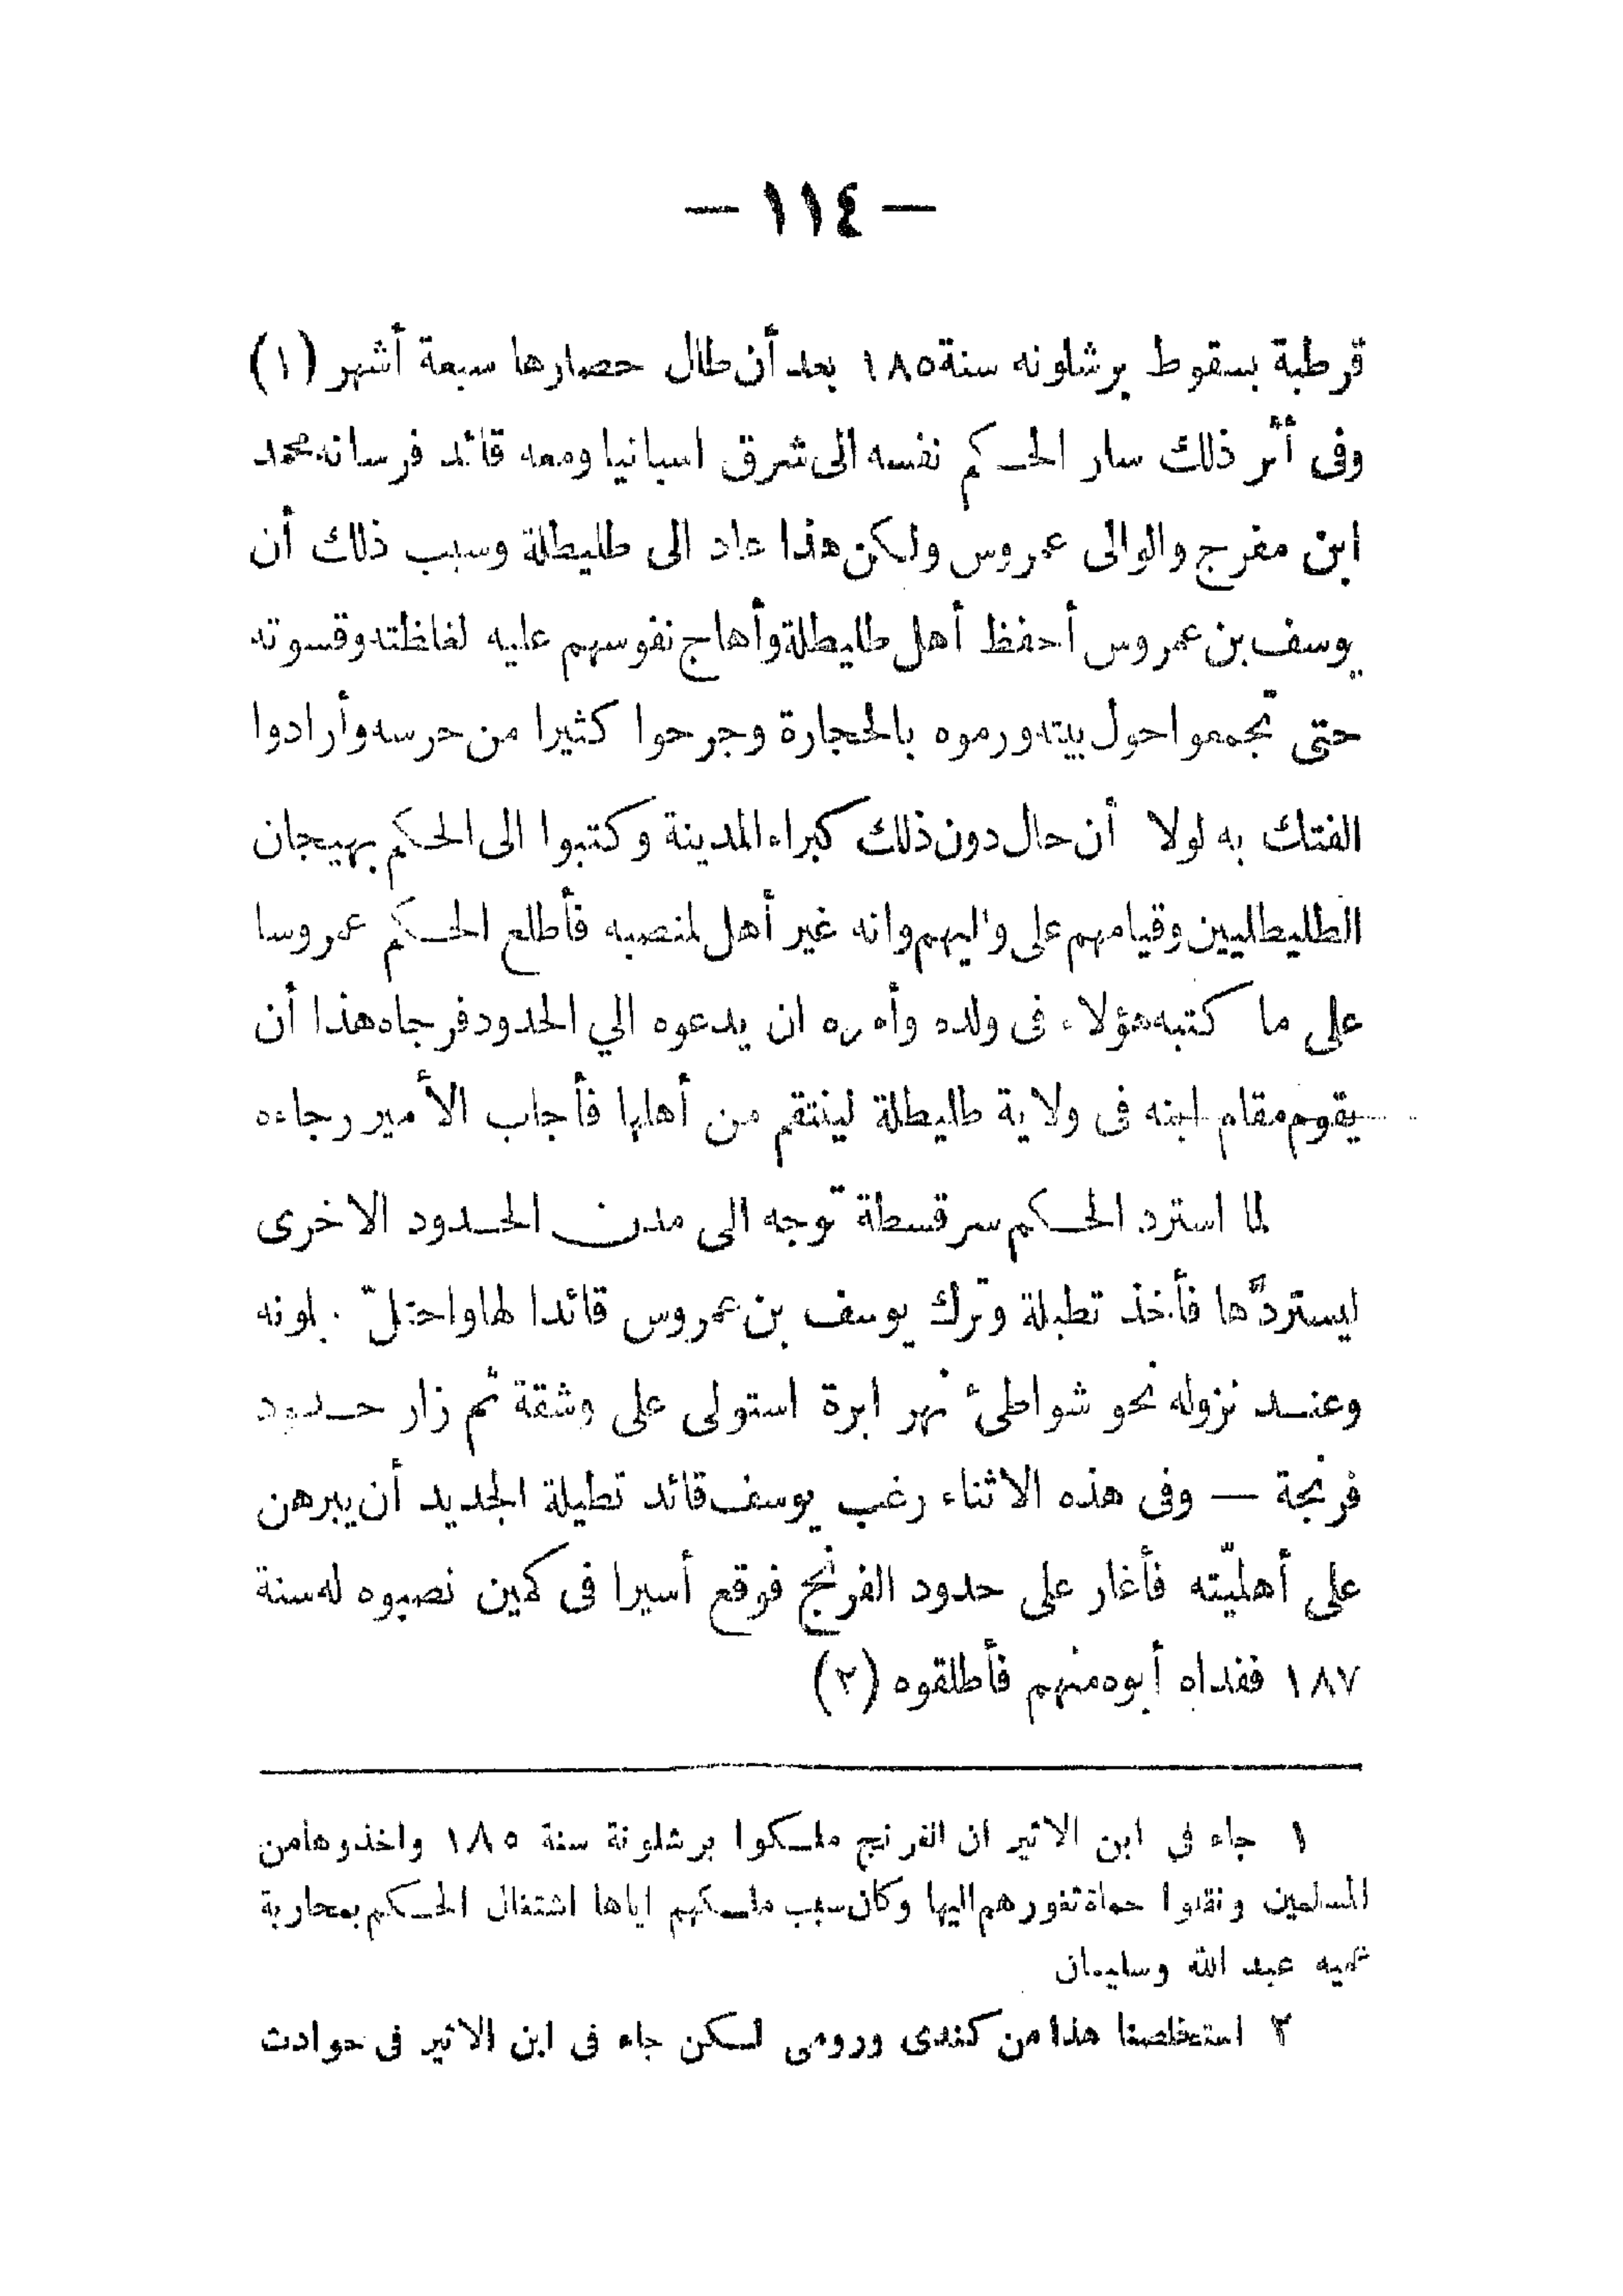 — ١١٤ —
قرطبة بسقوط برشلونه سنة ١٨٥ بعد أن طال حصارها سبعة أشهر (١)
وفى أثر ذلك سار الحكم نفسه الى شرق اسبانيا ومعه قائد فرسانه محمد
ابن مفرج والوالى عمروس ولكن هذا عاد الى طليطلة وسبب ذلك أن
يوسف بن عمروس أحفظ أهل طليطلة وأهاج نفوسهم عليه لغلظته وقسوته
حتى تجمعوا حول بيته ورموه بالحجارة وجرحوا كثيرا من حرسه وأرادوا
الفتك به لولا أن حال دون ذلك كبراء المدينة وكتبوا الى الحكم بهيجان
الطليطليين وقيامهم على واليهم وانه غير أهل لمنصبه فأطلع الحكم عمروسا
على ما كتبه هؤلاء فى ولده وأمره ان يدعوه الي الحدود فرجاه هذا أن
يقوم مقام ابنه فى ولاية طليطلة لينتقم من أهلها فأجاب الأمير رجاءه
لما استرد الحكم سرقسطة توجه الى مدن الحدود الاخرى
ليستردّها فأخذ تطيلة وترك يوسف بن عمروس قائدا لها واحتلّ
وعند نزوله نحو شواطئ نهر ابرة استولى على وشقة ثم زار حدود
فرنجة — وفى هذه الاثناء رغب يوسف قائد تطيلة الجديد أن يبرهن
على أهليّته فأغار على حدود الفرنج فوقع أسيرا فى كمين نصبوه له سنة
١٨٧ ففداه أبوه منهم فأطلقوه (٢)
١ جاء في ابن الاثير ان الفرنج ملكوا برشلونة سنة ١٨٥ واخذوها من
المسلمين ونقلوا حماة ثغورهم اليها وكان سبب ملكهم اياها اشتغال الحكم بمحاربة
عميه عبد الله وسليمان
٢ استخلصنا هذا من كندى ورومى لكن جاء فى ابن الاثير فى حوادث